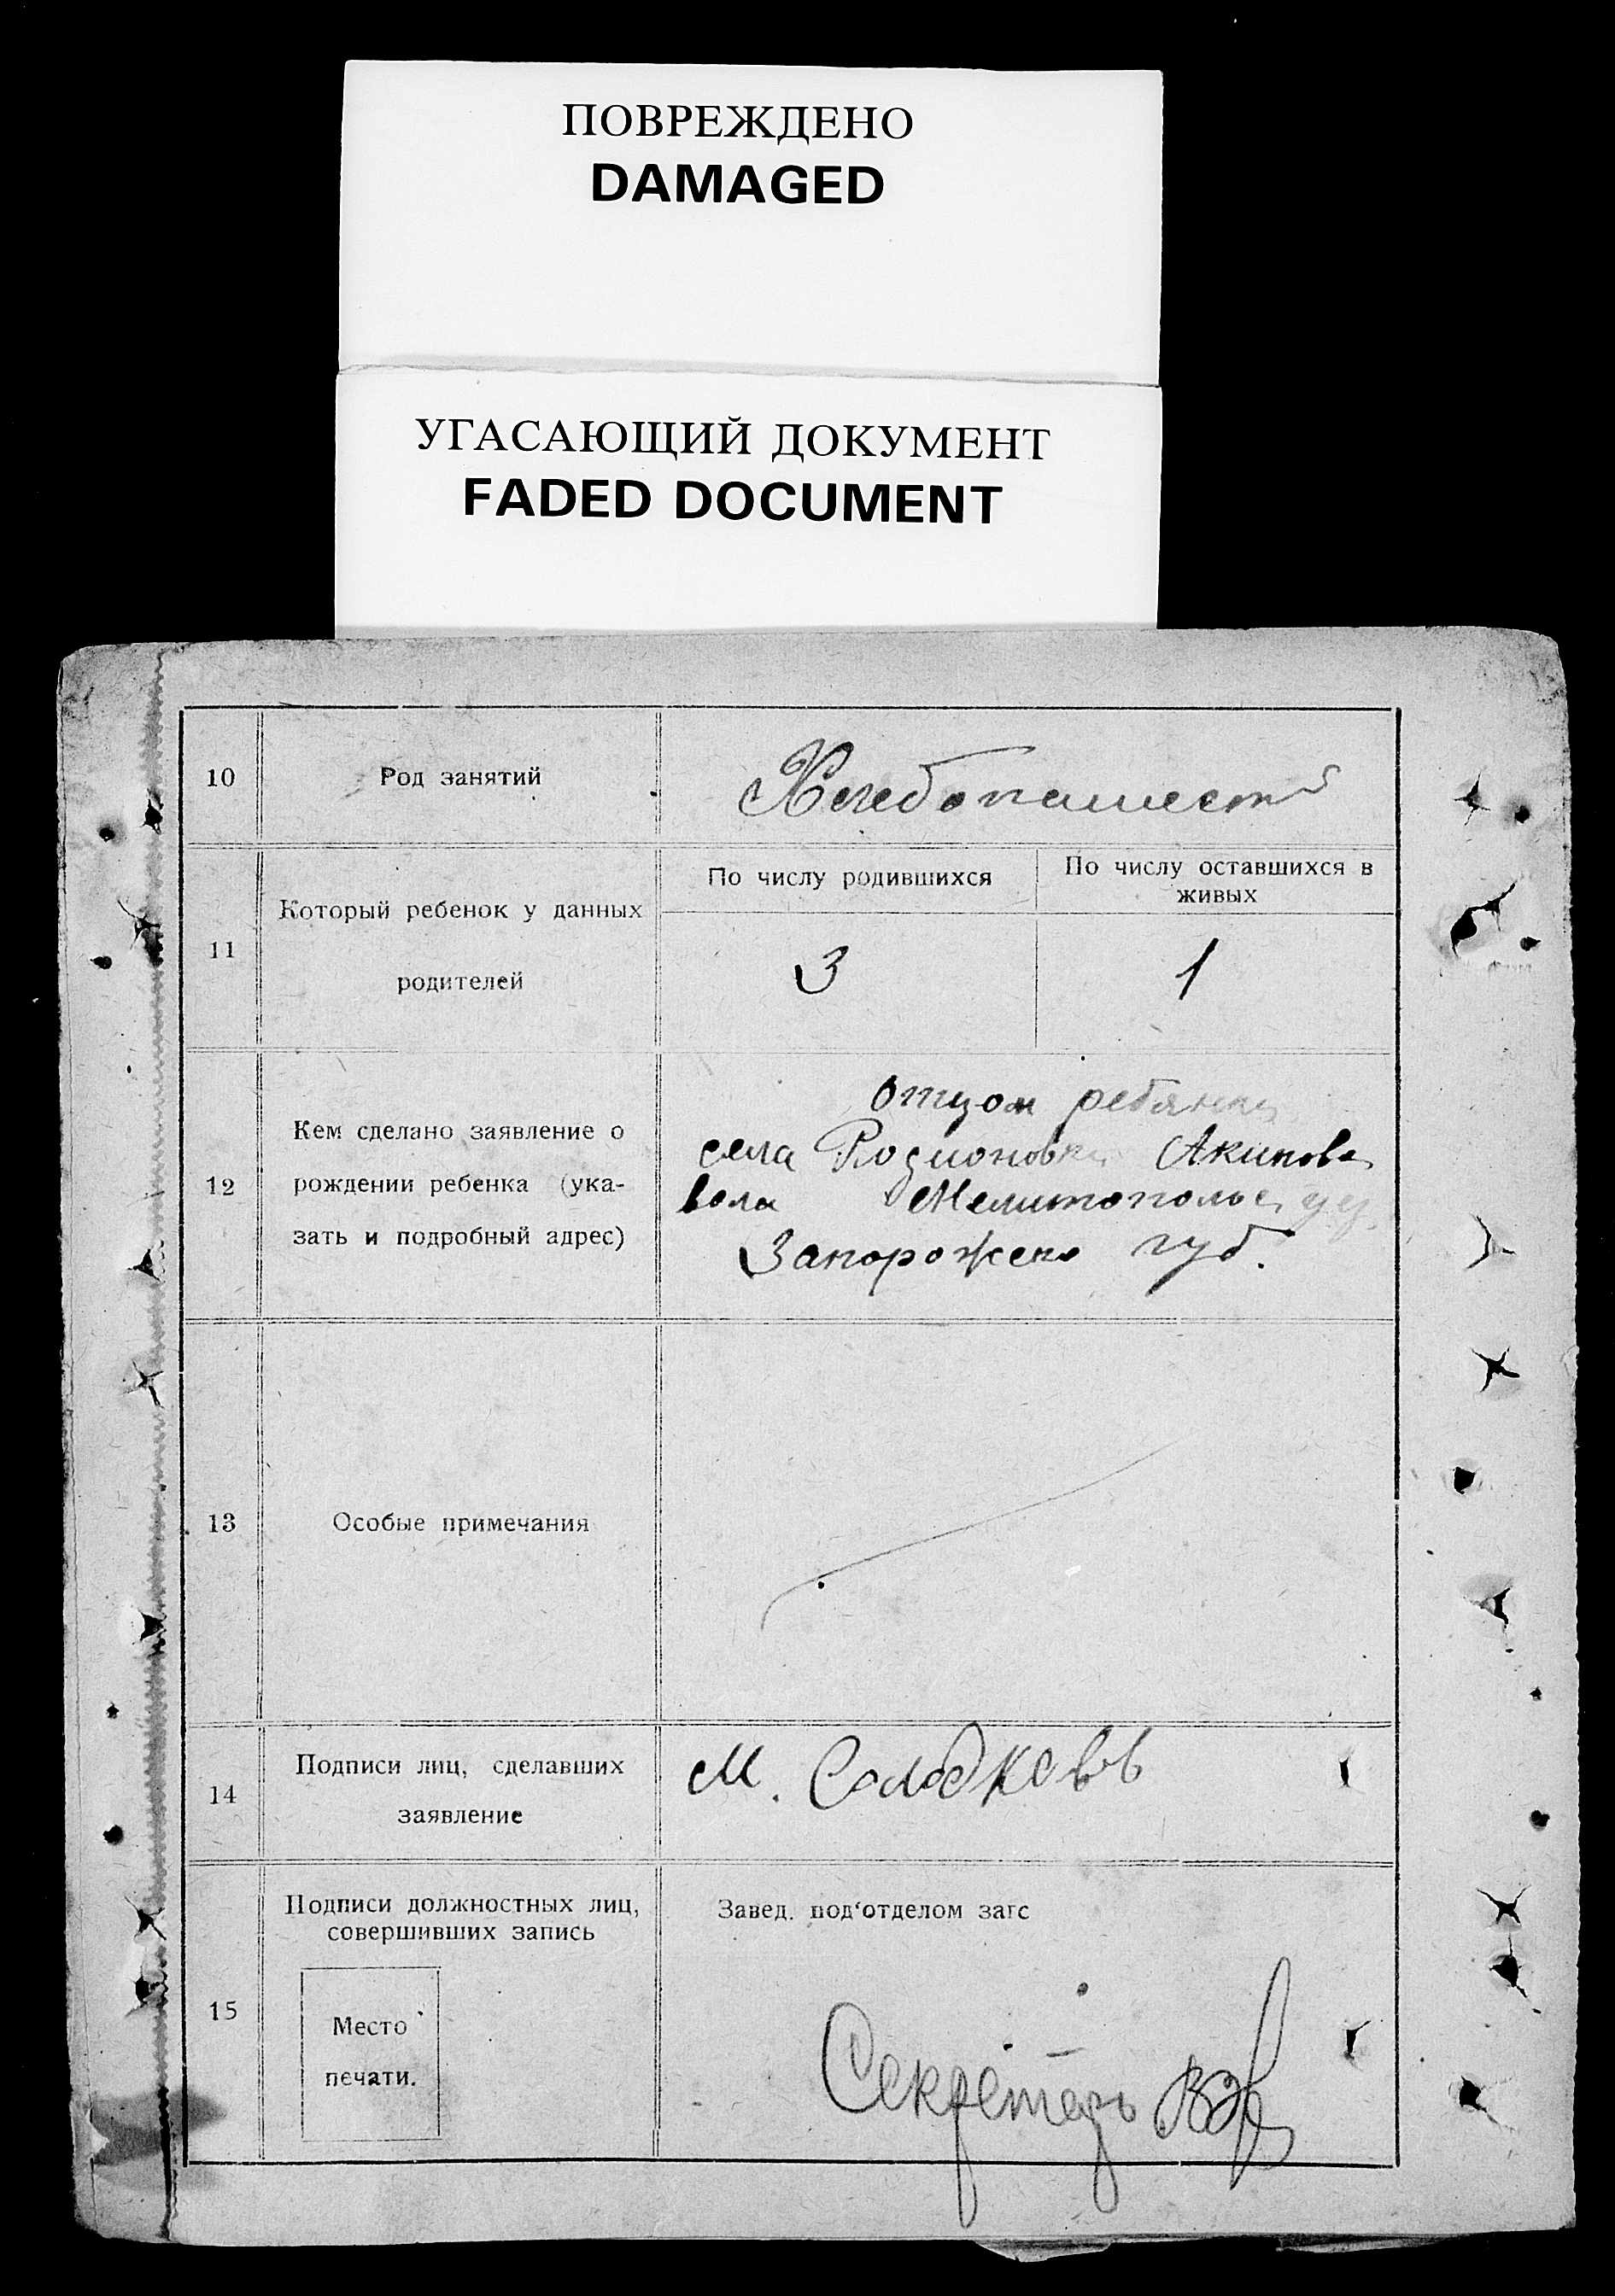 ПОВРЕЖДЕНО
DAMAGED
УГАСАЮЩИЙ ДОКУМЕНТ
FADED DOCUMENT
10
Род занятий
Хлебопашест
11
Который ребенок у данных
родителей
По числу родившихся
По числу оставшихся в
живых
3
1
12
Кем сделано заявление о
рождении ребенка (ука-
зать и подробный адрес)
Отцом ребянка
села Родионовки Акимов
вола Мелитопольс уез
Запорожско губ.
13
Особые примечания
14
Подписи лиц, сделавших
заявление
М. Сладковъ
15
Подписи должностных лиц,
совершивших запись
Место
печати.
Завед. под'отделом загс
Секретарь